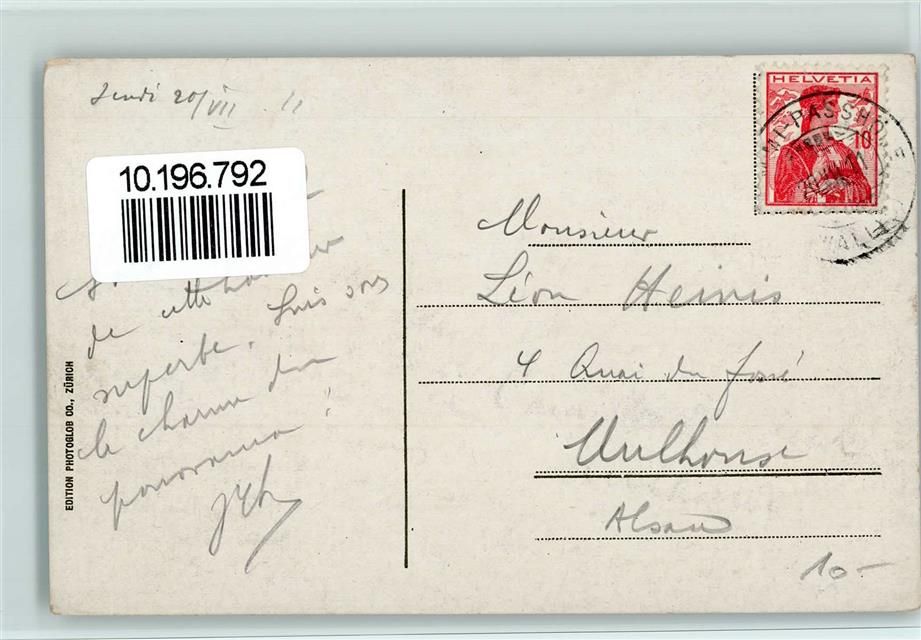 Jeudi 20/VII 11
10.196.792
de cette hauteur
superbe. Suis sous
le charme du
panorama!
EDITION PHOTOGLOB CO., ZÜRICH
HELVETIA
10
Monsieur
Léon Heinis
4 Quai du fossé
Mulhouse
Alsace
10-